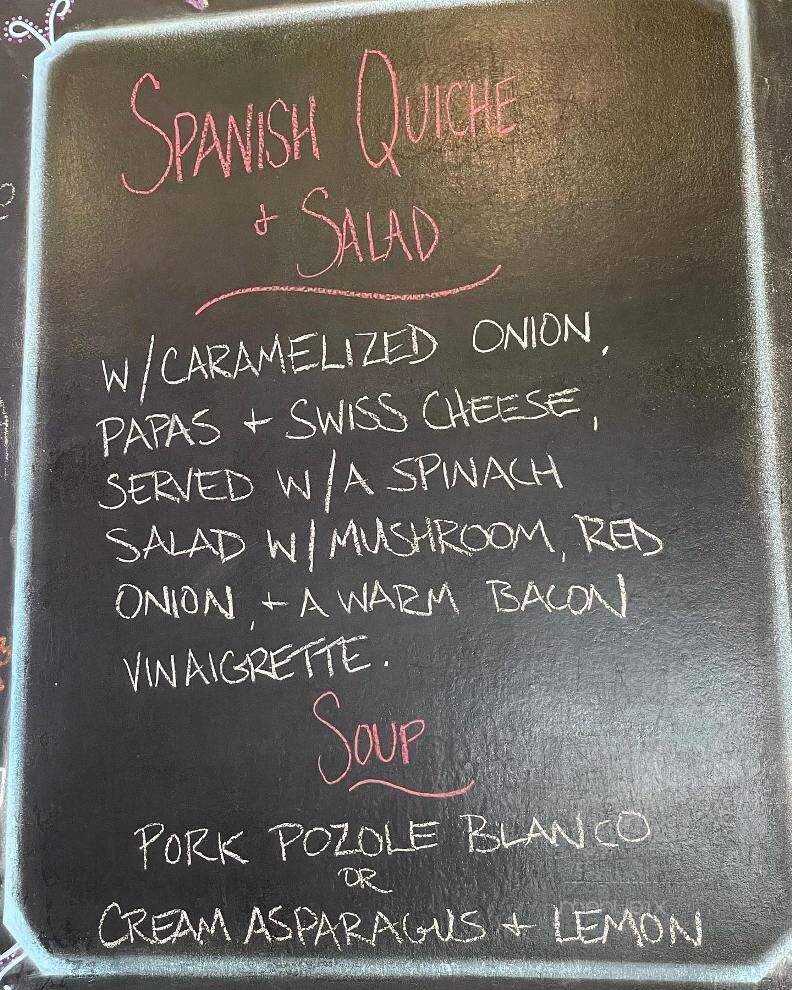 SPANISH QUICHE
+ SALAD
W/CARAMELIZED ONION,
PAPAS + SWISS CHEESE,
SERVED W/A SPINACH
SALAD W/MUSHROOM, RED
ONION, + A WARM BACON
VINAIGRETTE.
SOUP
PORK POZOLE BLANCO
OR
CREAM ASPARAGUS + LEMON